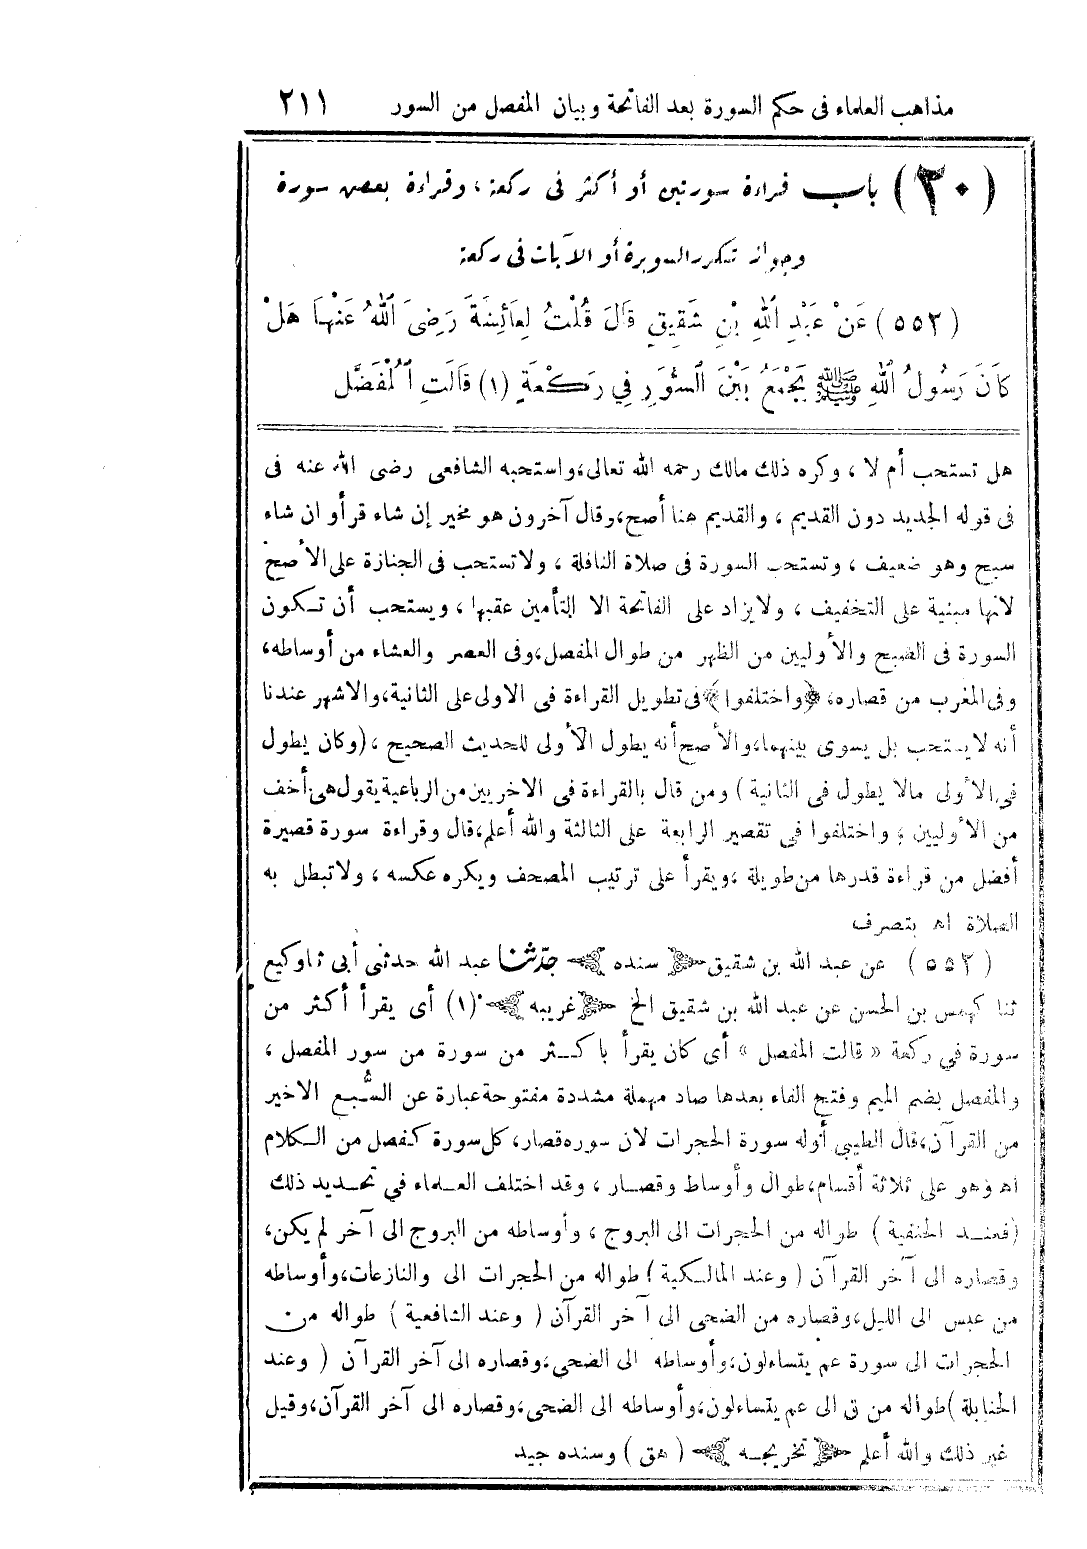 مذاهب العلماء فى حكم السورة بعد الفاتحة وبيان المفصل من السور ٢١١
(٣٠) باب قراءة سورتين أو أكثر فى ركعة ، وقراءة بعض سورة
وجواز تكرر السورة أو الآيات فى ركعة
(٥٥٢) عَنْ عَبْدِ اللهِ بْنِ شَقِيقٍ قَالَ قُلْتُ لِعَائِشَةَ رَضِىَ اللهُ عَنْهَا هَلْ
كَانَ رَسُولُ اللهِ ﷺ يَجْمَعُ بَيْنَ السُّوَرِ فِي رَكْعَةٍ (١) قَالَتِ الْمُفَصَّل
هل تستحب أم لا ، وكره ذلك مالك رحمه الله تعالى،واستحبه الشافعى رضى الله عنه فى
فى قوله الجديد دون القديم ، والقديم هنا أصح،وقال آخرون هو مخير إن شاء قرأ وان شاء
سبح وهو ضعيف ، وتستحب السورة فى صلاة النافلة ، ولا تستحب فى الجنازة على الأصح
لانها مبنية على التخفيف ، ولا يزاد على الفاتحة الا التأمين عقبها ، ويستحب أن تكون
السورة فى الصبح والأوليين من الظهر من طوال المفصل،وفى العصر والعشاء من أوساطه،
وفى المغرب من قصاره، ﴿واختلفوا﴾ فى تطويل القراءة فى الاولى على الثانية،والاشهر عندنا
أنه لا يستحب بل يسوى بينهما،والأصح أنه يطول الأولى للحديث الصحيح ، (وكان يطول
فى الأولى مالا يطول فى الثانية ) ومن قال بالقراءة فى الاخريين من الرباعية يقول هى أخف
من الأوليين ، واختلفوا فى تقصير الرابعة على الثالثة والله أعلم،قال وقراءة سورة قصيرة
أفضل من قراءة قدرها من طويلة ،ويقرأ على ترتيب المصحف ويكره عكسه ، ولا تبطل به
الصلاة اه بتصرف
(٥٥٢) عن عبد الله بن شقيق ﴿ سنده ﴾ حدّثنا عبد الله حدثنى أبى ثنا وكيع
ثنا كهمس بن الحسن عن عبد الله بن شقيق الخ ﴿ غريبه ﴾ (١) أى يقرأ أكثر من
سورة في ركعة « قالت المفصل » أى كان يقرأ باكثر من سورة من سور المفصل ،
والمفصل بضم الميم وفتح الفاء بعدها صاد مهملة مشددة مفتوحة عبارة عن السُّبع الاخير
من القرآن،قال الطيبي أوله سورة الحجرات لان سوره قصار، كل سورة كفصل من الكلام
اه وهو على ثلاثة أقسام،طوال وأوساط وقصار ، وقد اختلف العلماء في تحديد ذلك
(فعند الحنفية ) طواله من الحجرات الى البروج ، وأوساطه من البروج الى آخر لم يكن،
وقصاره الى آخر القرآن ( وعند المالكية ) طواله من الحجرات الى والنازعات،وأوساطه
من عبس الى الليل،وقصاره من الضحى الى آخر القرآن ( وعند الشافعية ) طواله من
الحجرات الى سورة عم يتساءلون،وأوساطه الى الضحى،وقصاره الى آخر القرآن ( وعند
الحنابلة ) طواله من ق الى عم يتساءلون،وأوساطه الى الضحى،وقصاره الى آخر القرآن،وقيل
غير ذلك والله أعلم ﴿ تخريجه ﴾ ( هق ) وسنده جيد